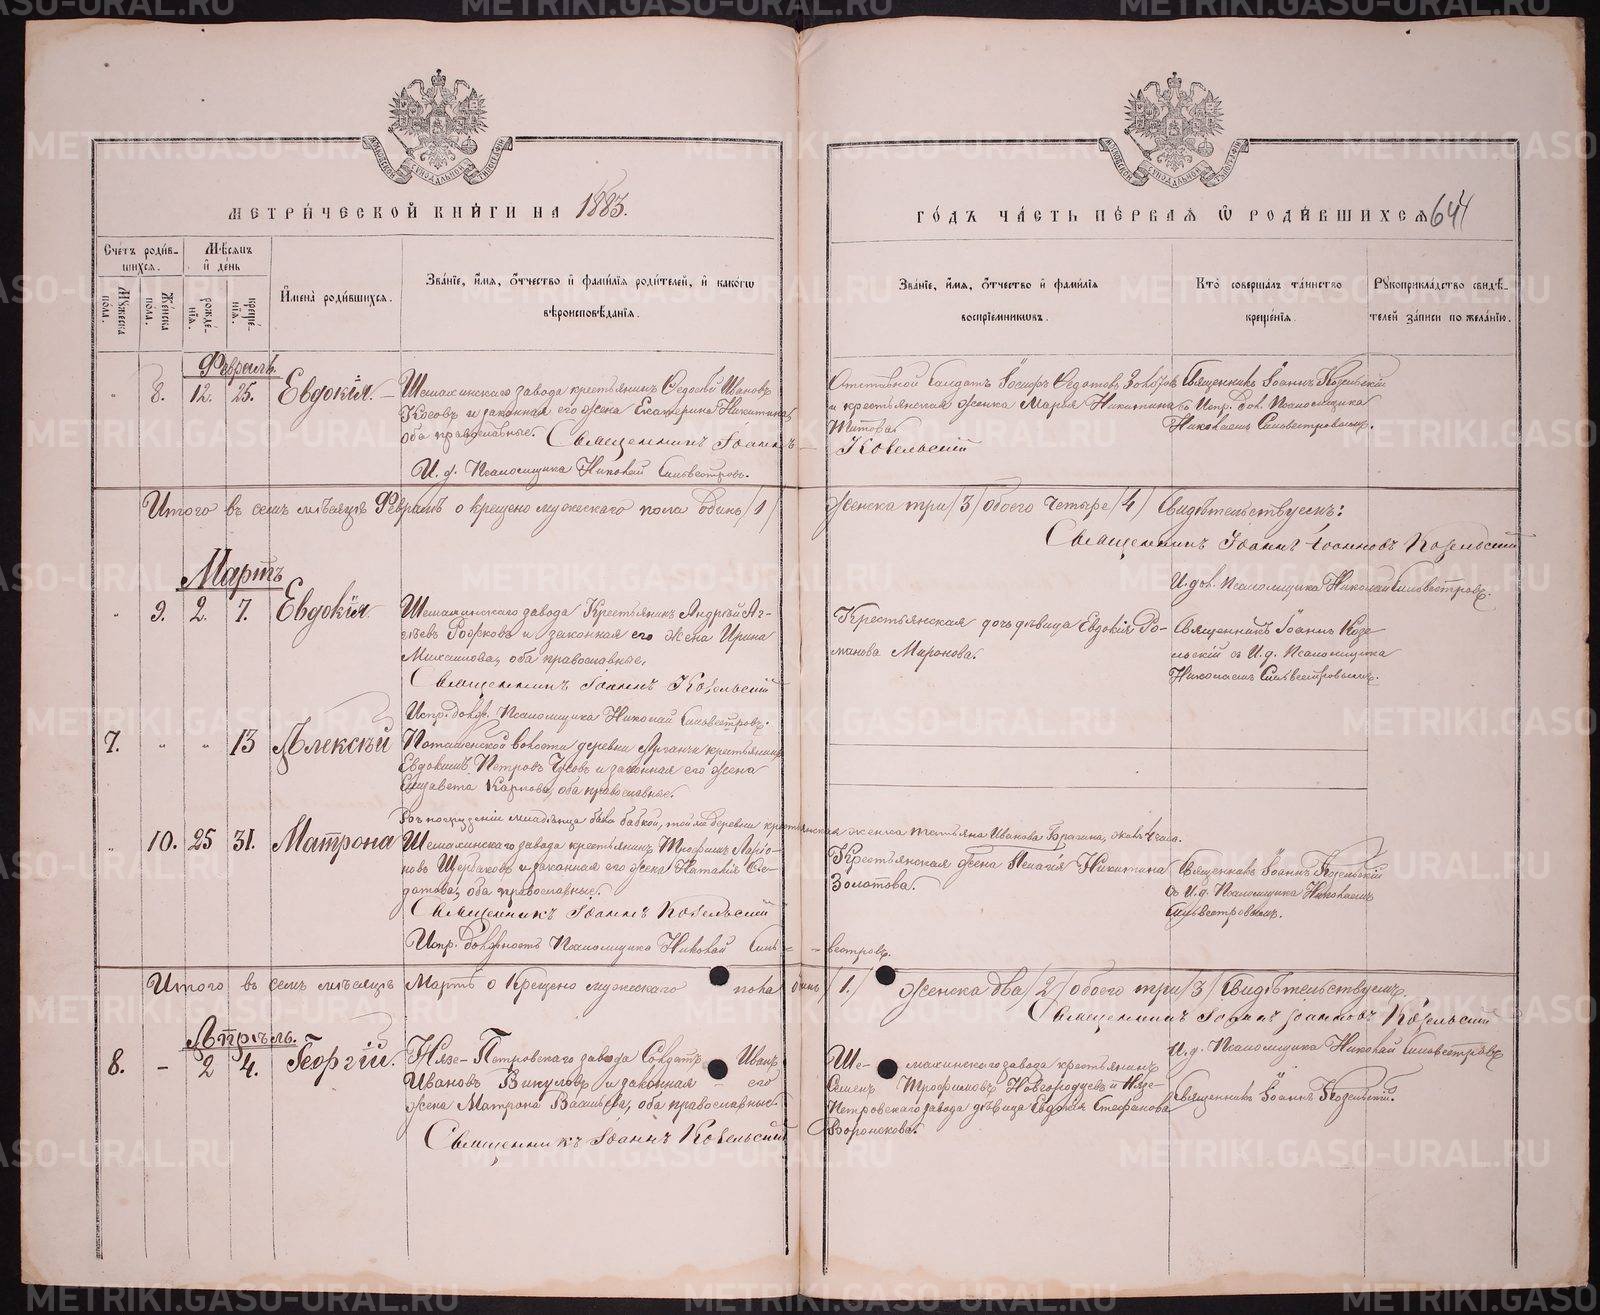 МЕТРИ́ЧЕСКОЙ КНИ́ГИ НА 1883.
ГО́ДЪ ЧА́СТЬ ПЕ́РВАЯ Ѽ РОДИ́ВШИХСЯ 644
Сче́тъ роди́в-
шихся.
Му́жеска пола.
Же́нска пола.
Мѣсяцъ
и҆ де́нь
рожде́-
нїя.
креще́-
нїя.
И҆мена̀ роди́вшихся.
Зва́нїе, и҆́мя, ѻ҆́тчество и҆ фами́лїя роди́телей, и҆ како́гѡ
вѣроисповѣ́данїя.
Зва́нїе, и҆́мя, ѻ҆́тчество и҆ фами́лїя
воспрїемникѡвъ.
Кто̀ соверша́лъ та́инство
креще́нїя.
Рꙋкоприкла́дство свидѣ́-
телей за́писи по жела́нїю.
Февраль.
" 8. 12. 25. Евдокія.
Шемахинскаго завода крестьянинъ Ѳедосѣй Ивановъ
Косовъ и законная его жена Екатерина Никитина,
оба православные. Священникъ Іоаннъ
Козельскій
И. д. Псаломщика Николай Сильвестровъ.
Отставной Солдатъ Іосифъ Ѳедотовъ
и крестьянская женка Марія Никитина
Титова.
Священникъ Іоаннъ Козельскій
съ Испр. Дол. Псаломщика
Николаемъ Сильвестровымъ.
Итого въ семъ мѣсяцѣ Февралѣ окрещено мужескаго пола Одинъ /1/
женска три /3/ обоего Четыре /4/ Свидѣтельствуемъ:
Священникъ Іоаннъ Іоанновъ Козельскій
И. дол. Псаломщика Николай Сильвестровъ.
Мартъ
" 9. 2. 7. Евдокія
Шемахинскаго завода Крестьянинъ Андрей
Рожкова и законная его жена Ирина
Михаилова, оба православные.
Священникъ Іоаннъ Козельскій
Испр. долж. Псаломщика Николай Сильвестровъ.
Крестьянская дочь дѣвица Евдокія Ро-
манова Миронова.
Священникъ Іоаннъ Козе-
льскій съ И. д. Псаломщика
Николаемъ Сильвестровымъ.
7. " " 13 Алексѣй
Поташенской волости деревни крестьянинъ
Евдокимъ Петровъ и законная его жена
Елизавета Карпова, оба православные.
Въ погруженіи младенца была бабкой, той же деревни крестьянская женка Татьяна Иванова
" 10. 25 31. Матрона
Шемахинскаго завода крестьянинъ Трофимъ Ларіо-
новъ Щербаковъ и законная его жена Наталія Ѳе-
дотова, оба православные.
Священникъ Іоаннъ Козельскій
Испр. должность Псаломщика Николай Силь-
-вестровъ.
Крестьянская жена Пелагія Никитина
Золотова.
Священникъ Іоаннъ Козельскій
съ И. д. Псаломщика Николаемъ
Сильвестровымъ.
Итого въ семъ мѣсяцѣ Мартѣ окрещено мужескаго пола одинъ /1./
Женска два /2/ обоего три /3/ Свидѣтельствуемъ
Священникъ Іоаннъ Іоанновъ Козельскій
И. д. Псаломщика Николай Сильвестровъ
Апрѣль.
8. - 2 4. Георгій.
Нязе-Петровскаго завода Солдатъ Иванъ
Ивановъ Викуловъ и законная его
жена Матрона Васильева, оба православные.
Священникъ Іоаннъ Козельскій
Шемахинскаго завода крестьянинъ
Семенъ Трофимовъ Новгородцевъ и Нязе-
Петровскаго завода дѣвица Евдокія Стефанова
Воронскова.
Священникъ Іоаннъ Козельскій.
METRIKI.GASO-URAL.RU